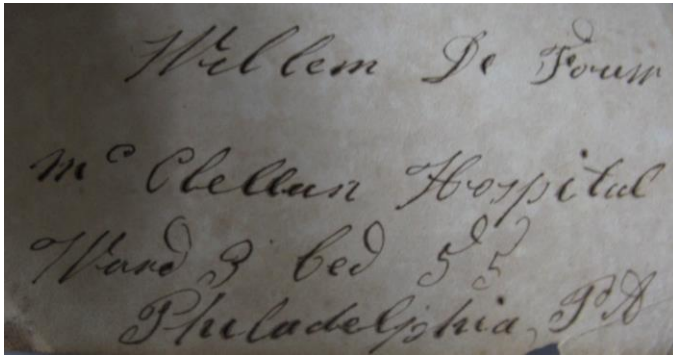 Willem De Fouw
Mc Clellan Hospital
Ward 3 bed 55
Philadelphia, PA